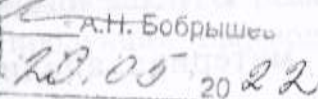 А.Н. Бобрышев
20.05 2022